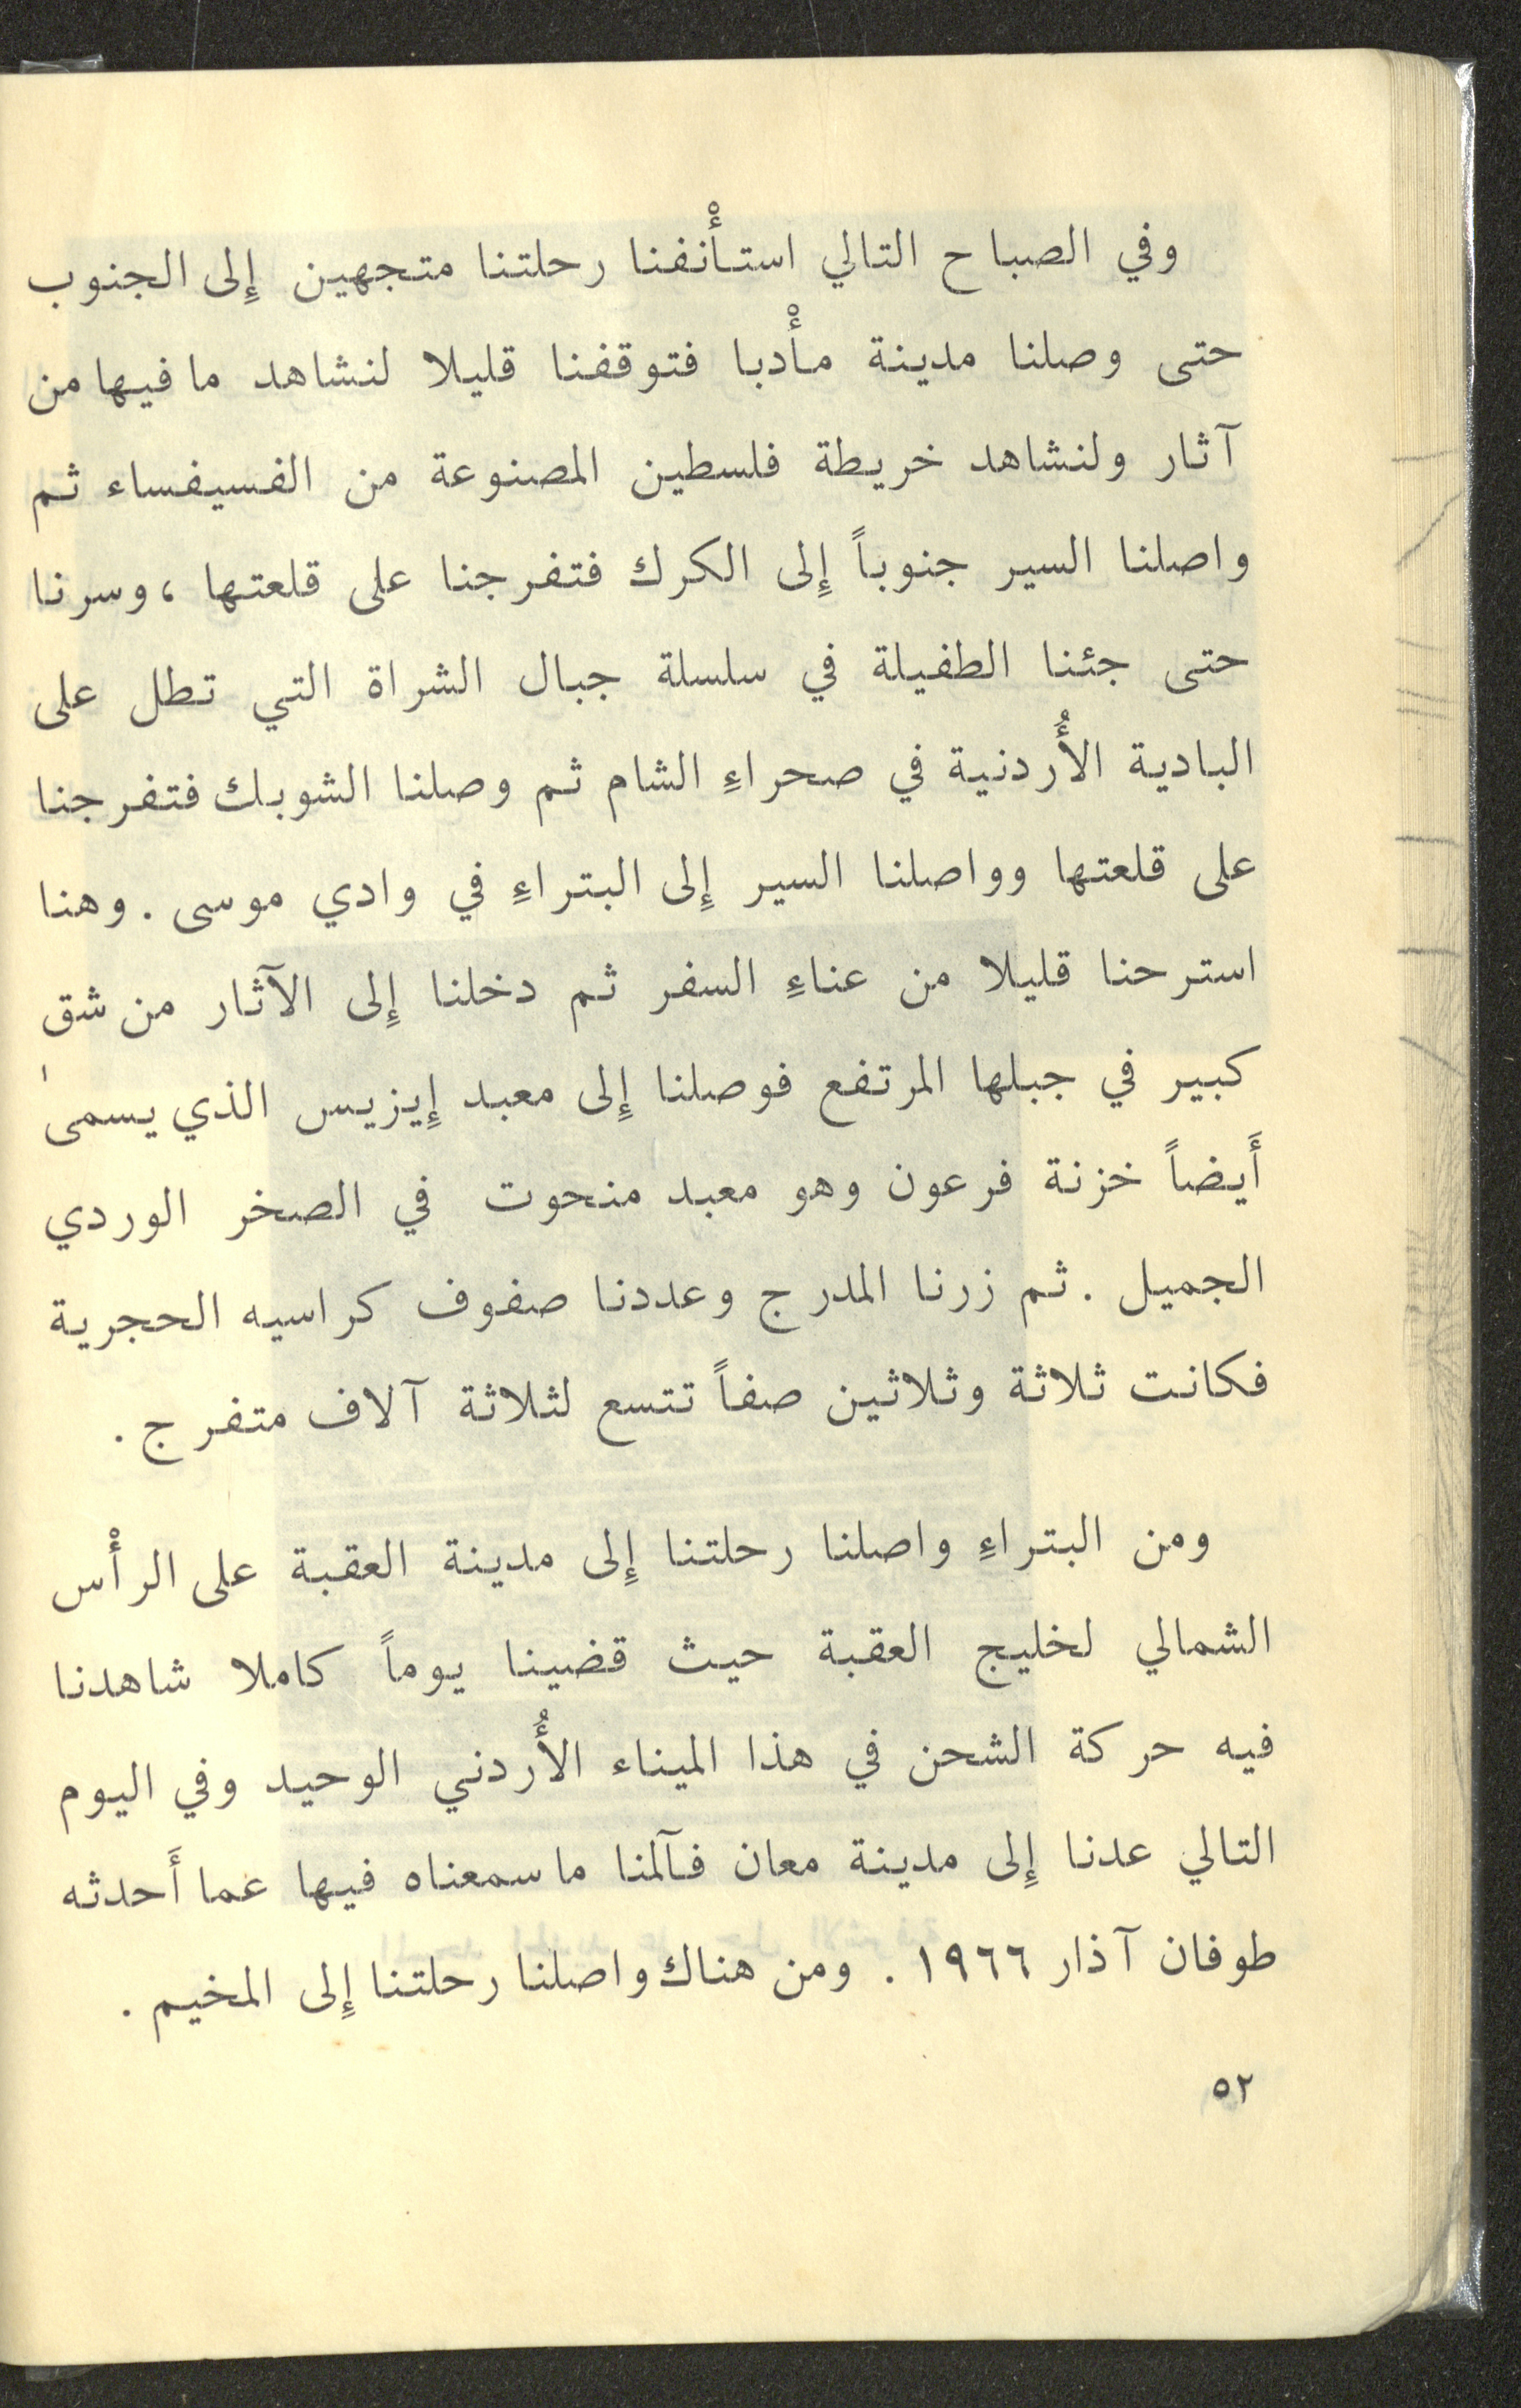 وفي الصباح التالي استأْنفنا رحلتنا متجهين إِلى الجنوب
حتى وصلنا مدينة مأْدبا فتوقفنا قليلا لنشاهد ما فيها من
آثار ولنشاهد خريطة فلسطين المصنوعة من الفسيفساء ثم
واصلنا السير جنوباً إِلى الكرك فتفرجنا على قلعتها ، وسرنا
حتى جئنا الطفيلة في سلسلة جبال الشراة التي تطل على
البادية الأُردنية في صحراءِ الشام ثم وصلنا الشوبك فتفرجنا
على قلعتها وواصلنا السير إِلى البتراءِ في وادي موسى . وهنا
استرحنا قليلا من عناءِ السفر ثم دخلنا إِلى الآثار من شق
كبير في جبلها المرتفع فوصلنا إِلى معبد إِيزيس الذي يسمى
أَيضاً خزنة فرعون وهو معبد منحوت في الصخر الوردي
الجميل . ثم زرنا المدرج وعددنا صفوف كراسيه الحجرية
فكانت ثلاثة وثلاثين صفاً تتسع لثلاثة آلاف متفرج .
ومن البتراءِ واصلنا رحلتنا إِلى مدينة العقبة على الرأْس
الشمالي لخليج العقبة حيث قضينا يوماً كاملا شاهدنا
فيه حركة الشحن في هذا الميناء الأُردني الوحيد وفي اليوم
التالي عدنا إِلى مدينة معان فآلمنا ما سمعناه فيها عما أَحدثه
طوفان آذار ١٩٦٦ . ومن هناك واصلنا رحلتنا إِلى المخيم .
٥٢